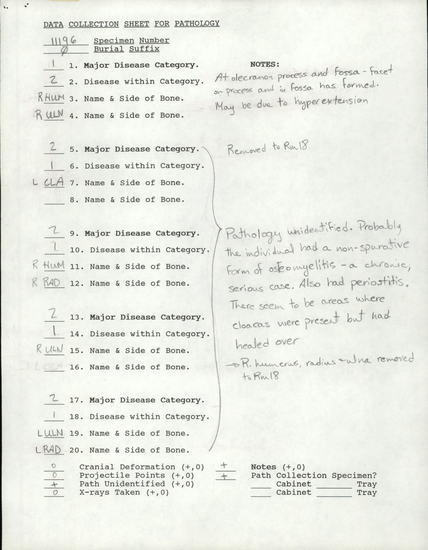 DATA COLLECTION SHEET FOR PATHOLOGY
11196 Specimen Number
0 Burial Suffix
1 1. Major Disease Category. NOTES:
2 2. Disease within Category. At olecranon process and fossa - facet
R HUM 3. Name & Side of Bone. on process and in fossa has formed.
R ULN 4. Name & Side of Bone. May be due to hyperextension
2 5. Major Disease Category. Removed to Rm 18
1 6. Disease within Category.
L CLA 7. Name & Side of Bone.
8. Name & Side of Bone.
2 9. Major Disease Category. Pathology unidentified. Probably
1 10. Disease within Category. the individual had a non-spurative
R HUM 11. Name & Side of Bone. form of osteomyelitis - a chronic,
R RAD 12. Name & Side of Bone. serious case. Also had periostitis.
2 13. Major Disease Category. There seem to be areas where
1 14. Disease within Category. cloacas were present but had
R ULN 15. Name & Side of Bone. healed over
16. Name & Side of Bone. → R. humerus, radius + ulna removed
to Rm 18
2 17. Major Disease Category.
1 18. Disease within Category.
L ULN 19. Name & Side of Bone.
L RAD 20. Name & Side of Bone.
0 Cranial Deformation (+,0) + Notes (+,0)
0 Projectile Points (+,0) + Path Collection Specimen?
+ Path Unidentified (+,0) Cabinet Tray
0 X-rays Taken (+,0) Cabinet Tray